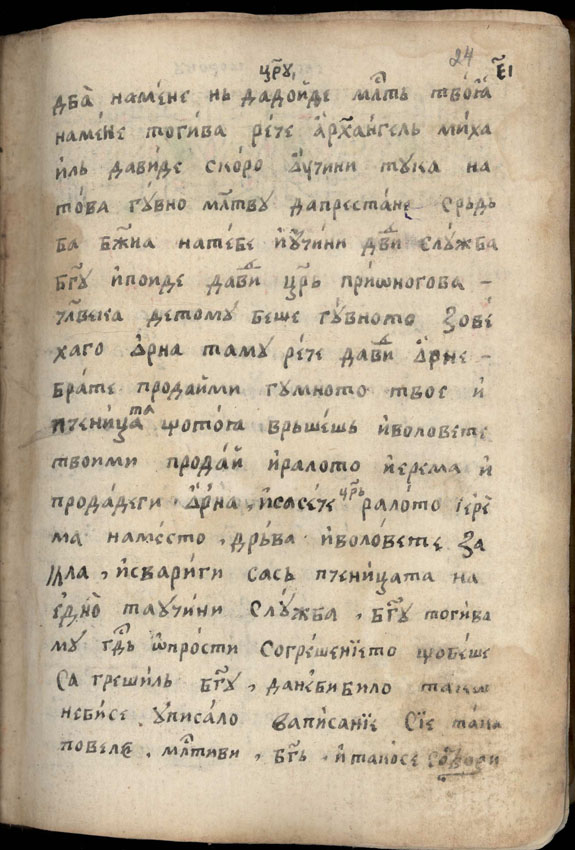 24
црꙋ, є҃і
два намене нь дадойде млть твоꙗ
намене тогива рече архангель миха
иль давиде скоро ѹчини тꙋка на
това гꙋвно млтвꙋ дапрестане срьдь
ба бжиа натебе иѹчини дви слꙋжба
бгꙋ ипоиде дави црь приѡногова –
члвека детомꙋ беше гꙋвното зове
хаго ѻрна тамꙋ рече дави ѻрне –
брате продайми гꙋмното твое и
пченицата щотоꙗ врьшешь иволовете
твоими продай иралото иерема и
продадеги , ѻрна , исасече црь ралото іере
ма наместо , дрьва иволовете за
кла , исвариги сась пченицата на
едно таꙋчини слꙋжба , бгꙋ тогива
мꙋ гдь ѡпрости согрешенїето щобеше
са грешиль бгꙋ , данебибило такои
небисе ѹписало ваписанїе сїе така
повеле , млтиви , бгь , итакосе